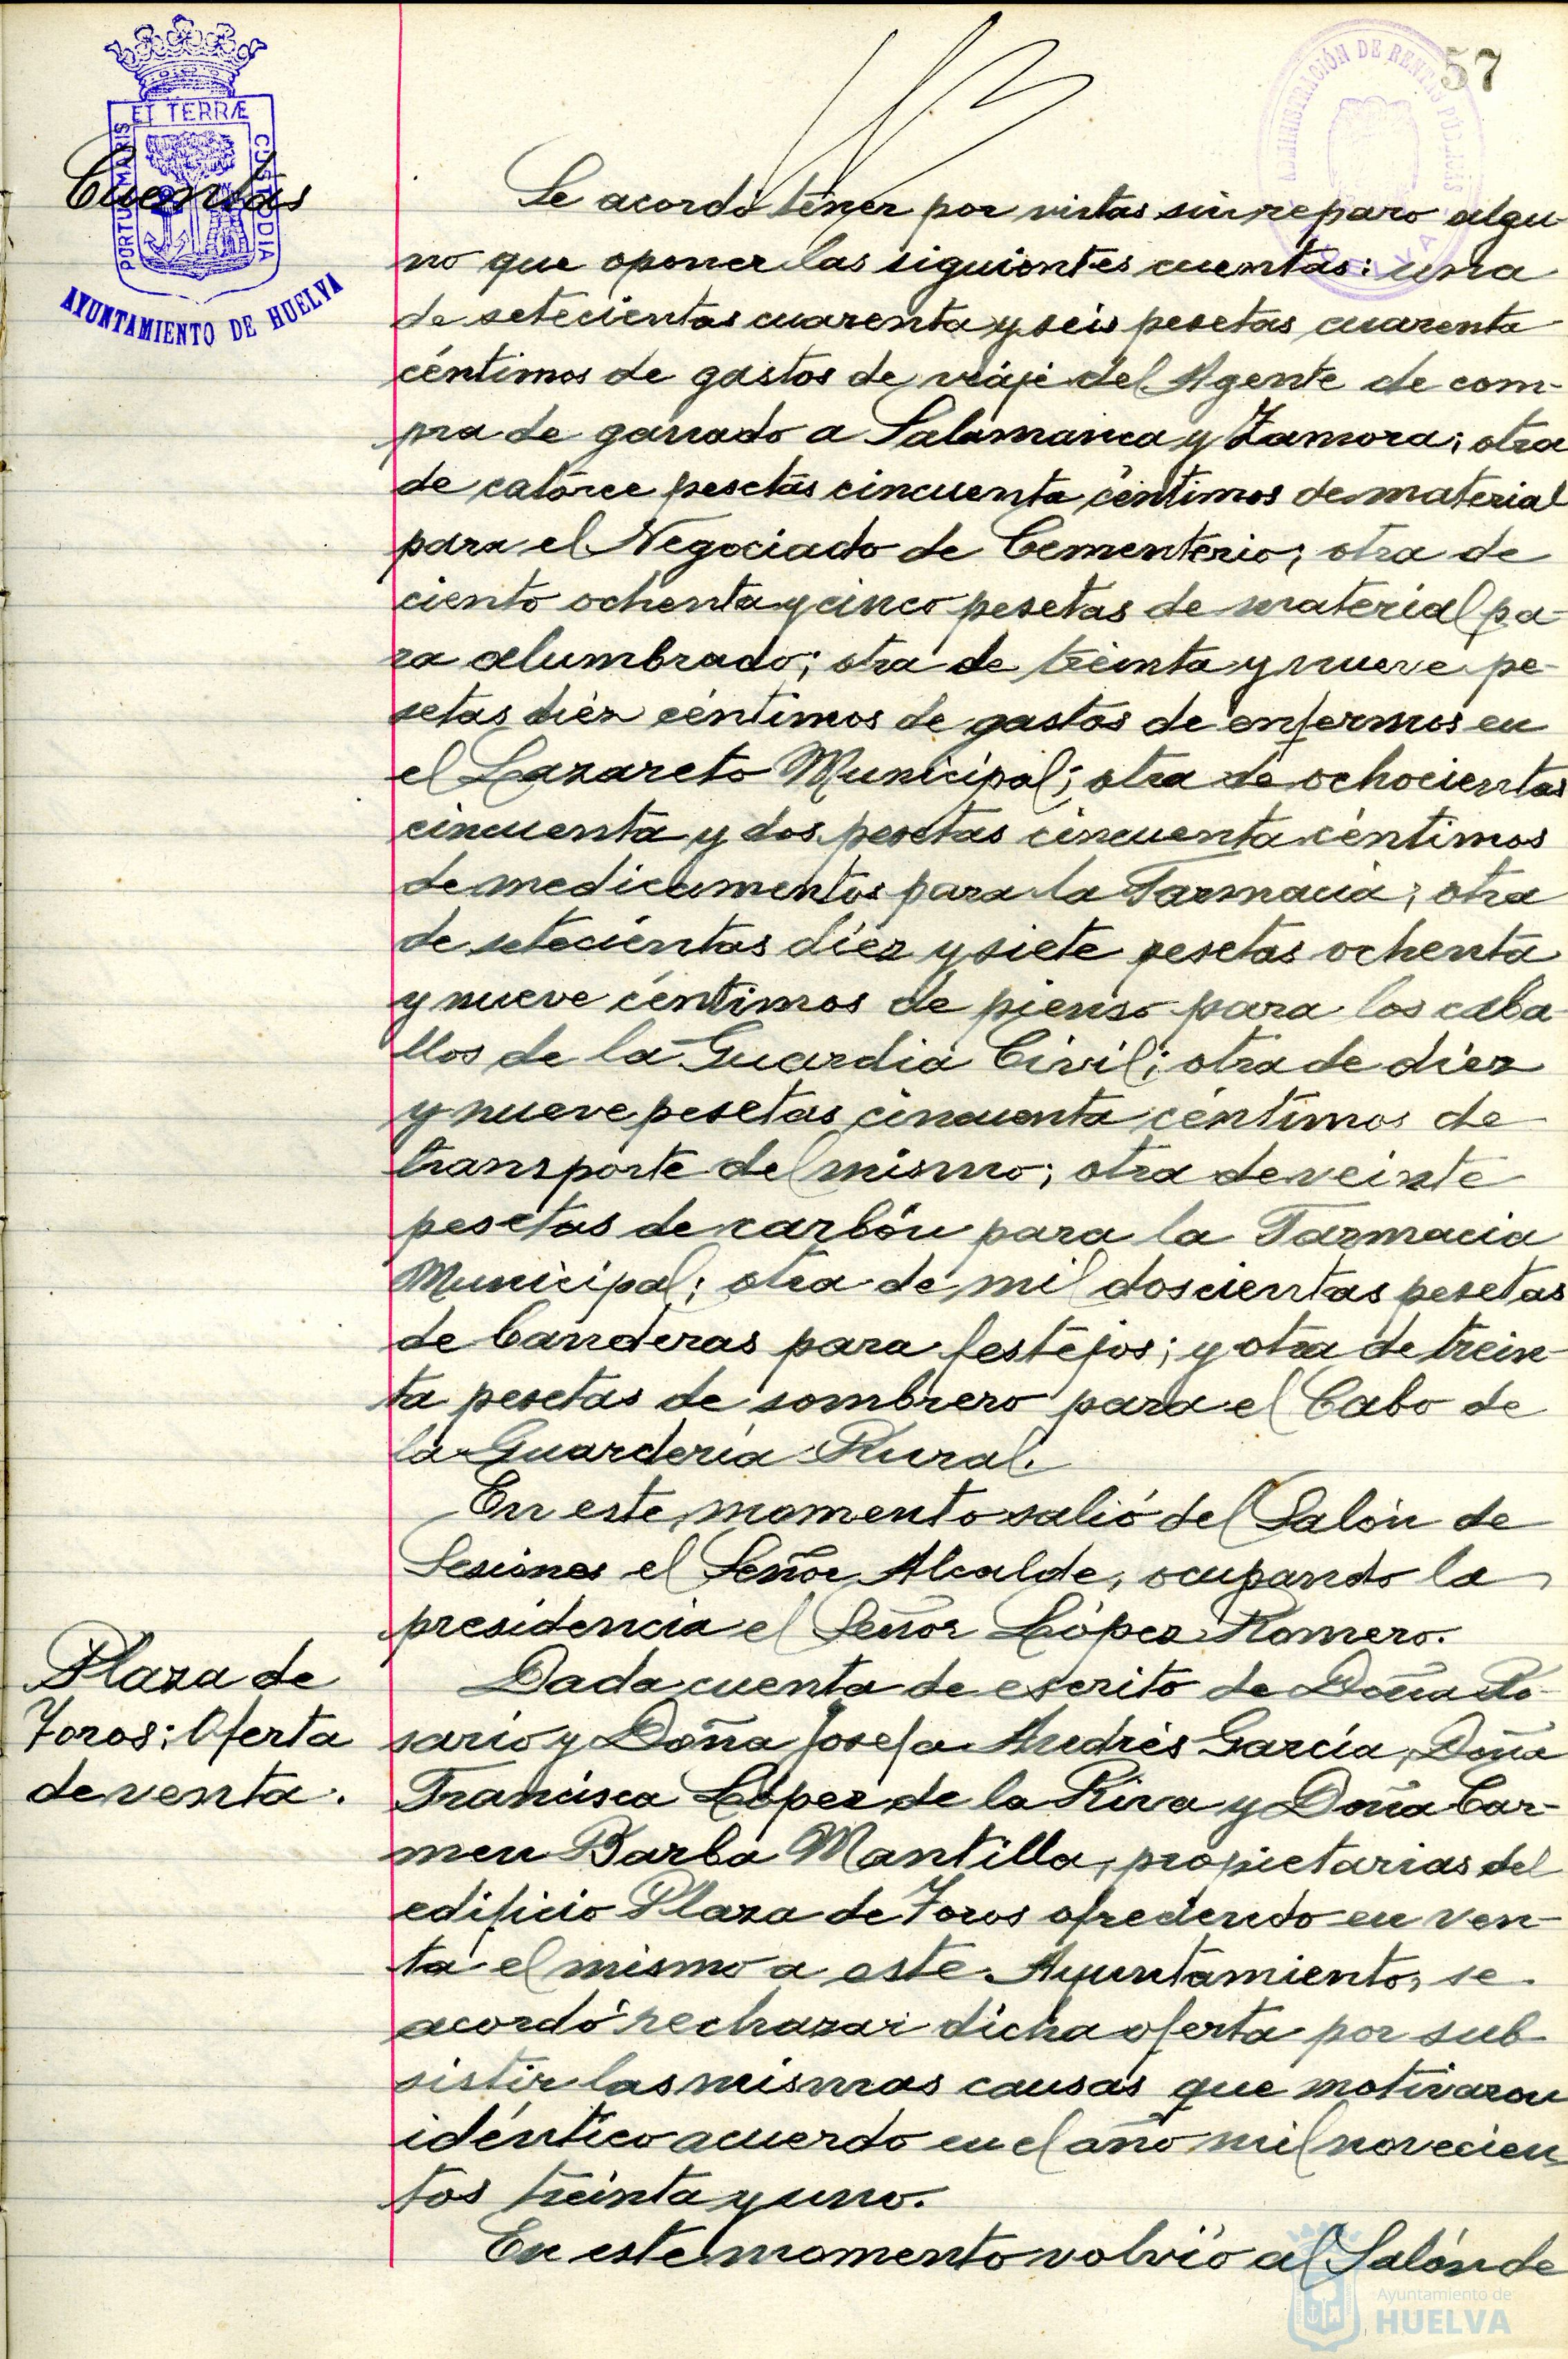 57
ADMINISTRACIÓN DE RENTAS PÚBLICAS
HUELVA
PORTUS MARIS ET TERRÆ CUSTODIA
AYUNTAMIENTO DE HUELVA
Cuentas
Se acordó tener por vistas sin reparo algu-
no que oponer las siguientes cuentas: una
de setecientas cuarenta y seis pesetas cuarenta
céntimos de gastos de viaje del Agente de com-
pra de ganado a Salamanca y Zamora; otra
de catorce pesetas cincuenta céntimos de material
para el Negociado de Cementerio; otra de
ciento ochenta y cinco pesetas de material pa-
ra alumbrado; otra de treinta y nueve pe-
setas diez céntimos de gastos de enfermos en
el Lazareto Municipal; otra de ochocientas
cincuenta y dos pesetas cincuenta céntimos
de medicamentos para la Farmacia; otra
de setecientas diez y siete pesetas ochenta
y nueve céntimos de pienso para los caba-
llos de la Guardia Civil; otra de diez
y nueve pesetas cincuenta céntimos de
transporte del mismo; otra de veinte
pesetas de carbón para la Farmacia
Municipal; otra de mil doscientas pesetas
de banderas para festejos; y otra de trein-
ta pesetas de sombrero para el Cabo de
la Guardería Rural.
En este momento salió del Salón de
Sesiones el Señor Alcalde, ocupando la
presidencia el Señor López Romero.
Plaza de
Toros: Oferta
de venta.
Dada cuenta de escrito de Doña Ro-
sario y Doña Josefa Andrés García, Doña
Francisca López de la Riva y Doña Car-
men Barba Mantilla, propietarias del
edificio Plaza de Toros ofreciendo en ven-
ta el mismo a este Ayuntamiento, se
acordó rechazar dicha oferta por sub-
sistir las mismas causas que motivaron
idéntico acuerdo en el año mil novecien-
tos treinta y uno.
En este momento volvió al Salón de
Ayuntamiento de
HUELVA